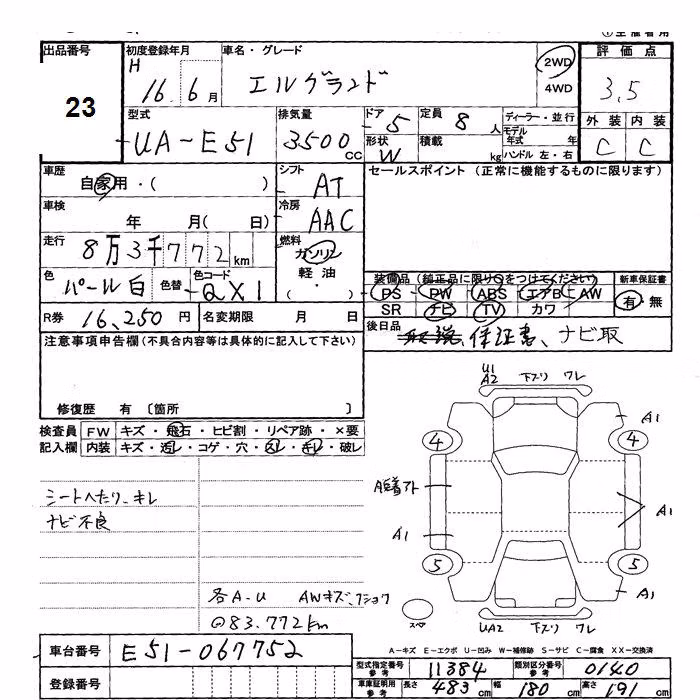 出品番号
23
初度登録年月
H 16. 6 月
車名・グレード
エルグランド
2WD
4WD
評価点
3.5
外装 内装
C C
型式
UA-E51
排気量
3500 CC
ドア 5
定員 8 人
形状 W
積載 kg
ディーラー・並行
モデル年式 年
ハンドル 左・右
車歴
自家用・( )
シフト
AT
セールスポイント (正常に機能するものに限ります)
車検
年 月( 日)
冷房
AAC
走行
8万3千772 km
燃料
ガソリン
軽油
( ・ )
色
パール白
色替
色コード
QX1
装備品 (純正品に限り○をつけてください)
PS PW ABS エアB AW
SR ナビ TV カワ
新車保証書
有・無
R券 16,250 円
名変期限 月 日
後日品
保証書、ナビ取
注意事項申告欄(不具合内容等は具体的に記入して下さい)
修復歴 有 〔箇所 〕
検査員
記入欄
FW キズ・飛石・ヒビ割・リペア跡・×要
内装 キズ・汚レ・コゲ・穴・スレ・キレ・破レ
シートヘたり、キレ
ナビ不良
各A-U AWキズ、フショク
@83.772km
U1
A2 下スリ ワレ
A1
4 4
A1
A1
5 5
A1
スペア
UA2 下スリ ワレ
A-キズ E-エクボ U-凹み W-補修跡 S-サビ C-腐食 XX-交換済
車台番号
E51-067752
登録番号
型式指定番号 参考
11384
類別区分番号 参考
0140
車庫証明用 参考
長さ 483 cm
幅 180 cm
高さ 191 cm